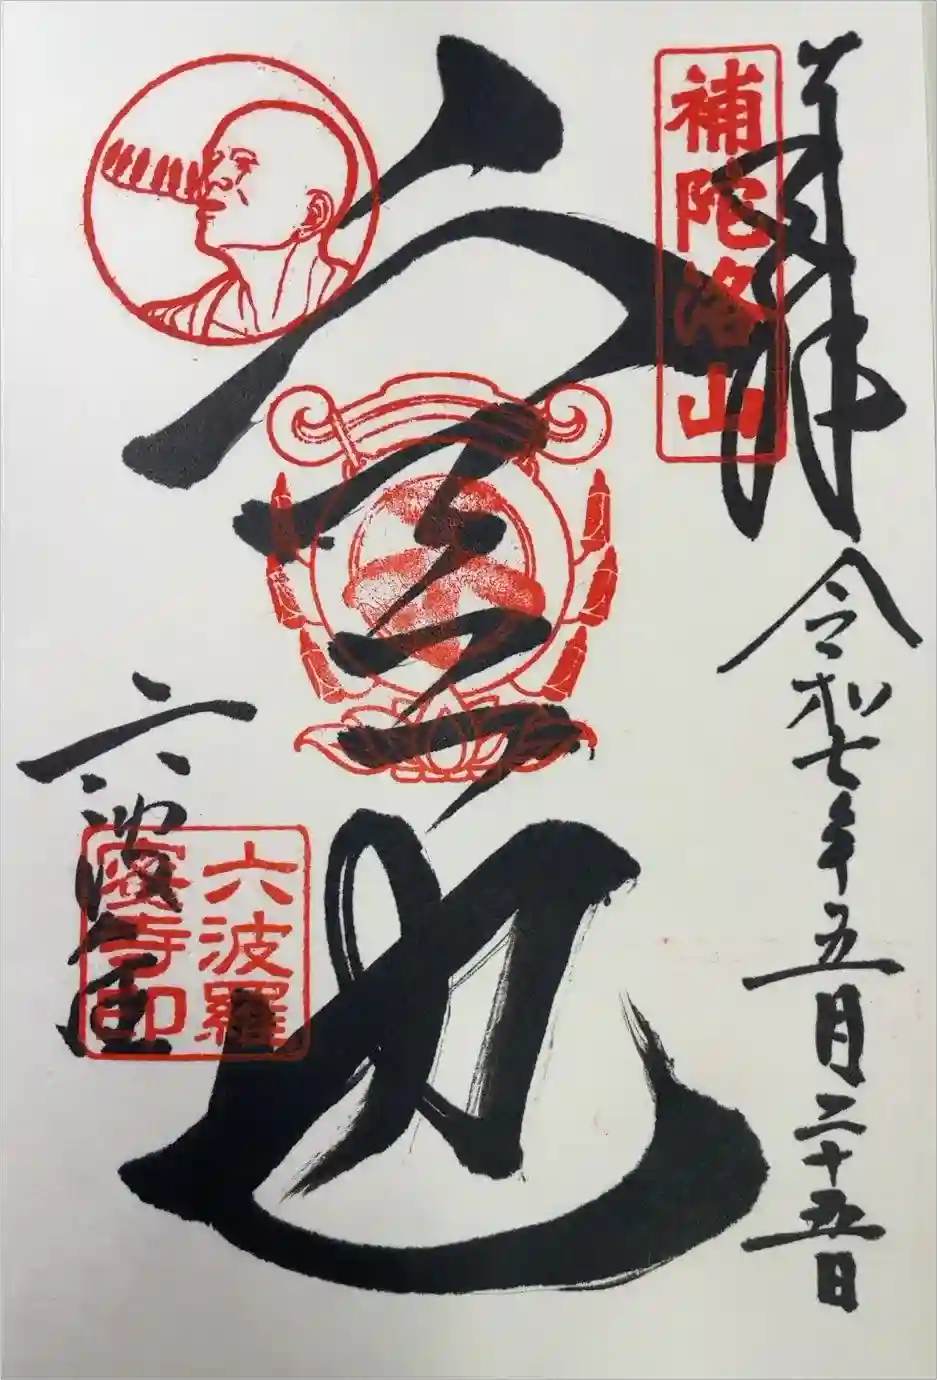 奉拝 令和七年五月二十五日
補陀洛山
空也
六波羅
六波羅
蜜寺印